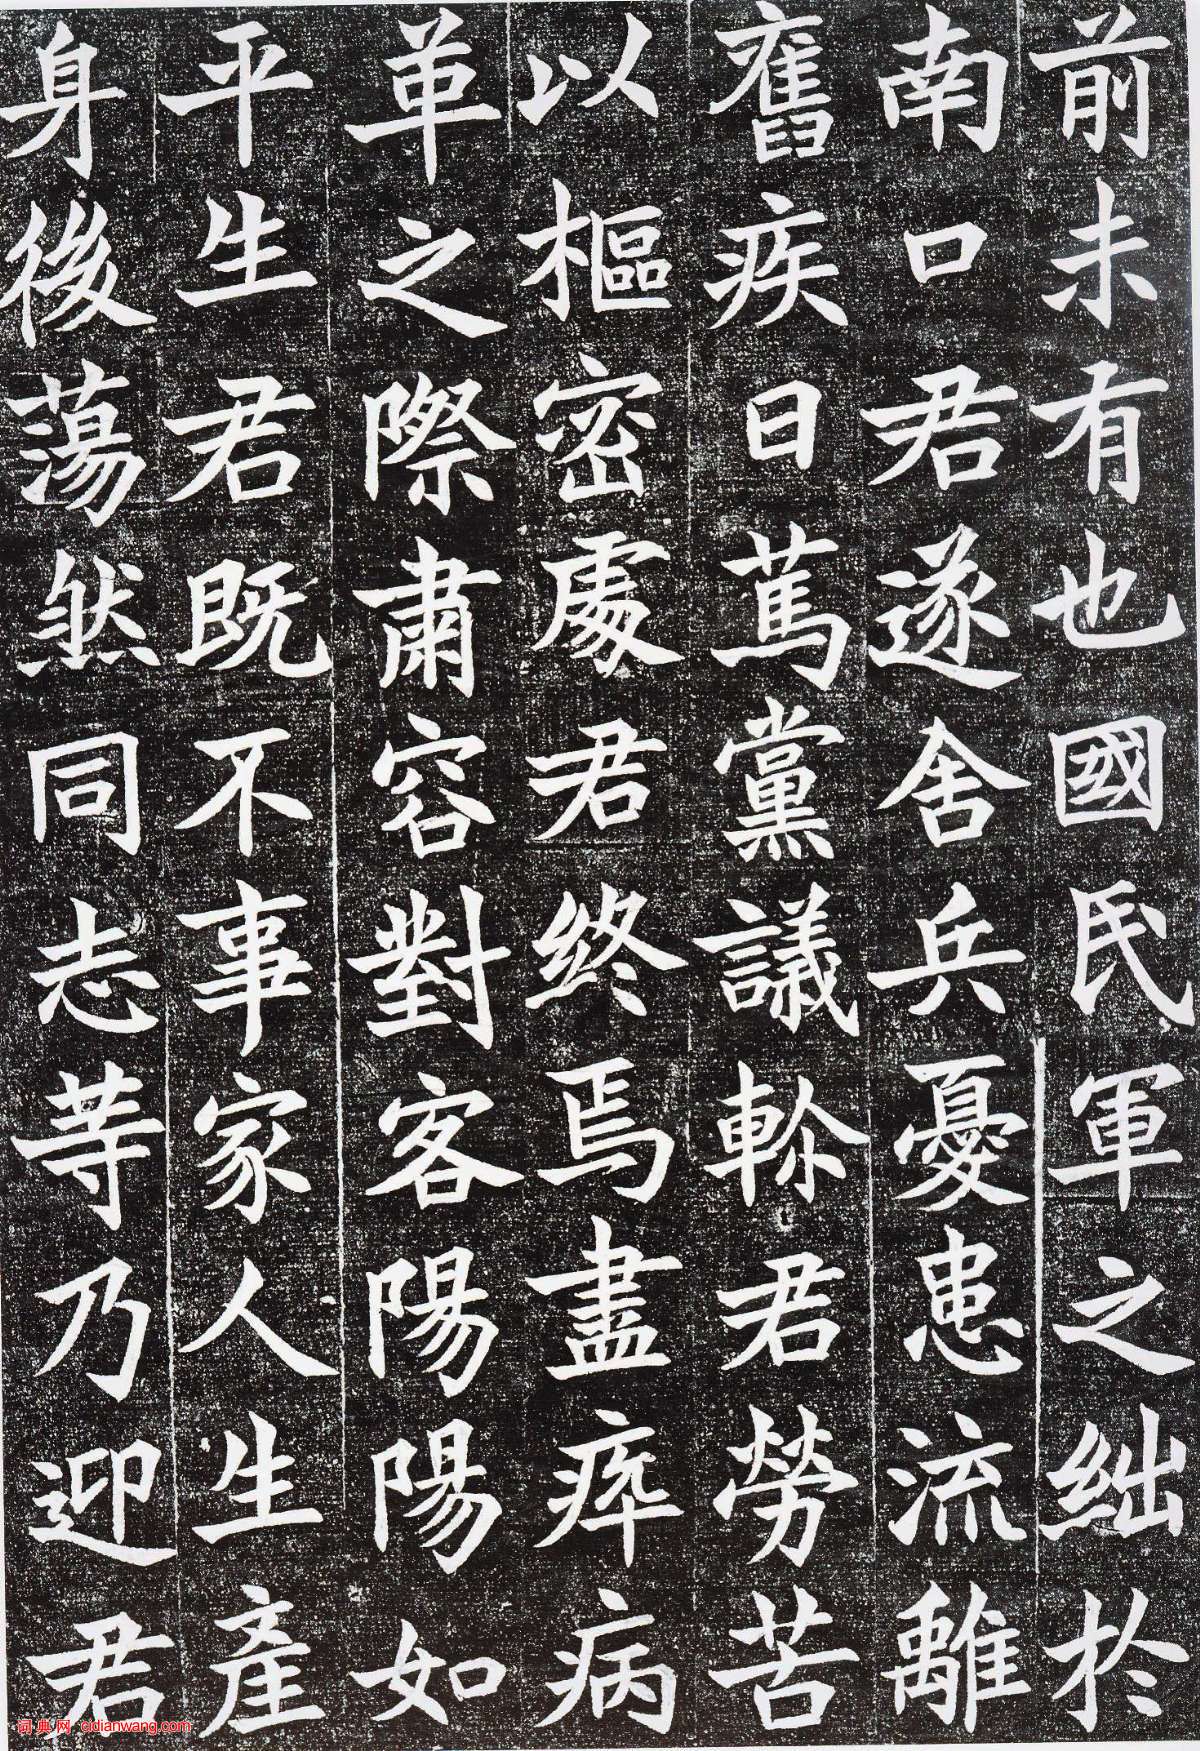 前未有也國民軍之絀於
南口君遂舍兵憂患流離
舊疾日篤黨議軫君勞苦
以樞密處君終焉盡瘁病
革之際肅容對客陽陽如
平生君既不事家人生產
身後蕩然同志等乃迎君
词典网 cidianwang.com